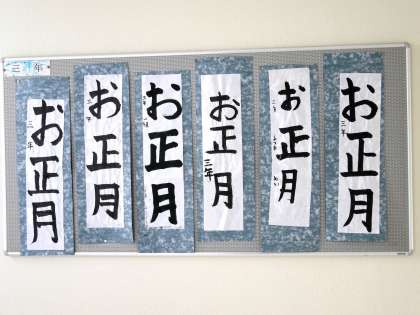 三年
お正月
三年
お正月
三年
お正月
お正月
三年
お正月
お正月
三年